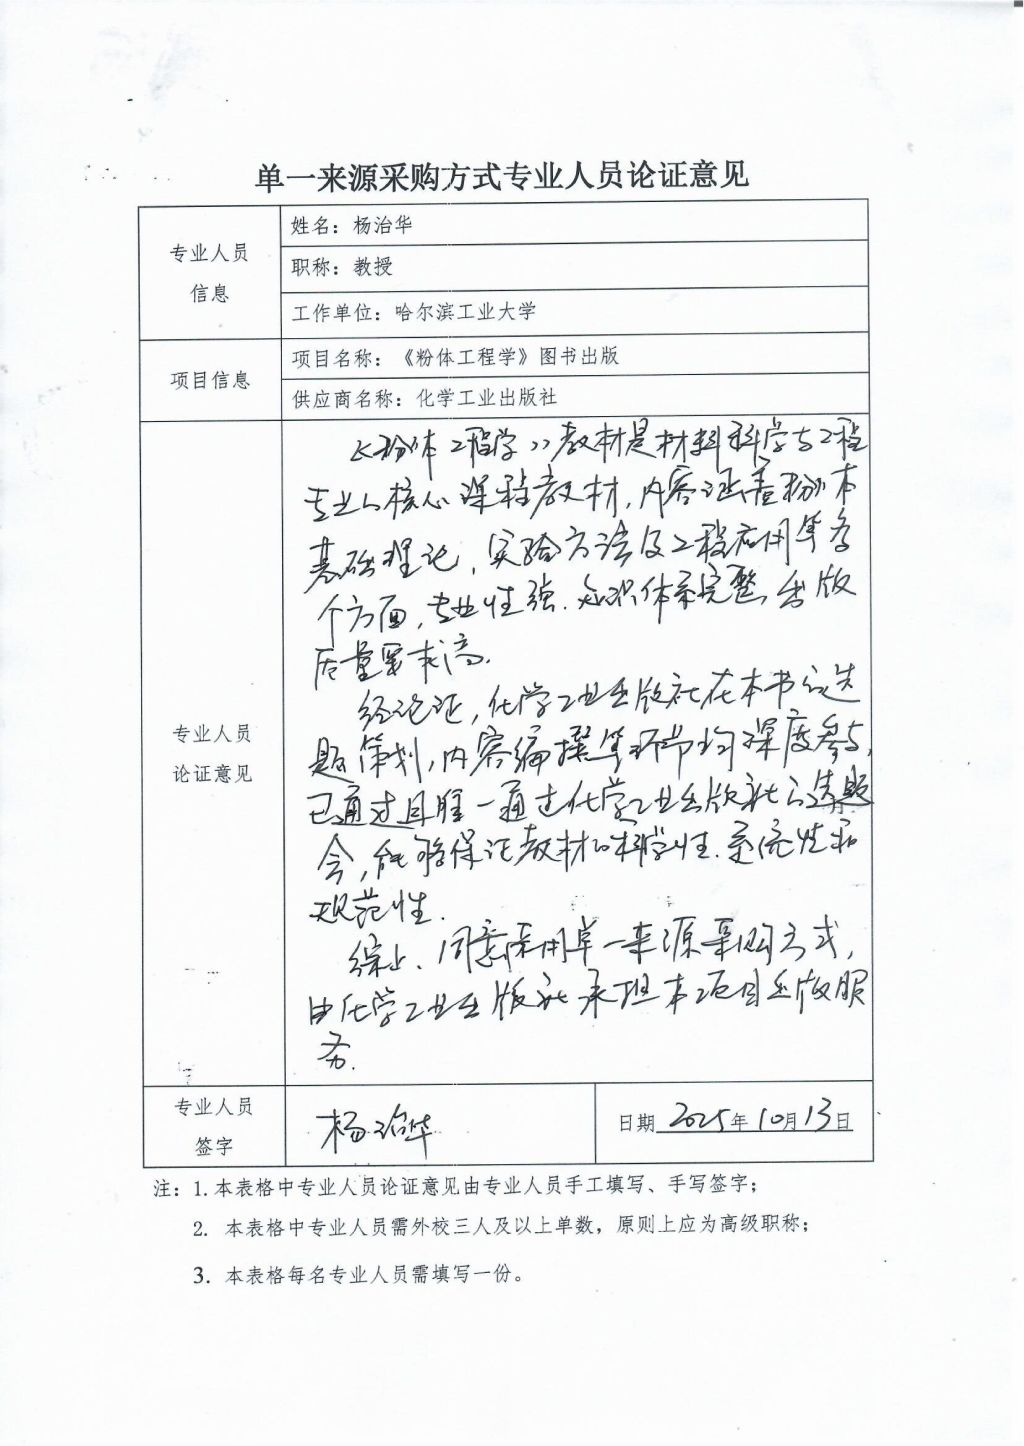 单一来源采购方式专业人员论证意见
专业人员
信息
姓名：杨治华
职称：教授
工作单位：哈尔滨工业大学
项目信息
项目名称：《粉体工程学》图书出版
供应商名称：化学工业出版社
专业人员
论证意见
《粉体工程学》教材是材料科学与工程
专业的核心课程教材，内容涵盖粉体
基础理论，实验方法及工程应用等多
个方面，专业性强、知识体系完整，出版
质量要求高。
经论证，化学工业出版社在本书的选
题策划，内容编撰等环节均深度参与，
已通过且唯一通过化学工业出版社的选题
会，能够保证教材的科学性、系统性和
规范性。
综上、同意采用单一来源采购方式，
由化学工业出版社承担本项目出版服
务。
专业人员
签字
杨治华
日期 2025年10月13日
注：1.本表格中专业人员论证意见由专业人员手工填写、手写签字；
2. 本表格中专业人员需外校三人及以上单数，原则上应为高级职称；
3. 本表格每名专业人员需填写一份。